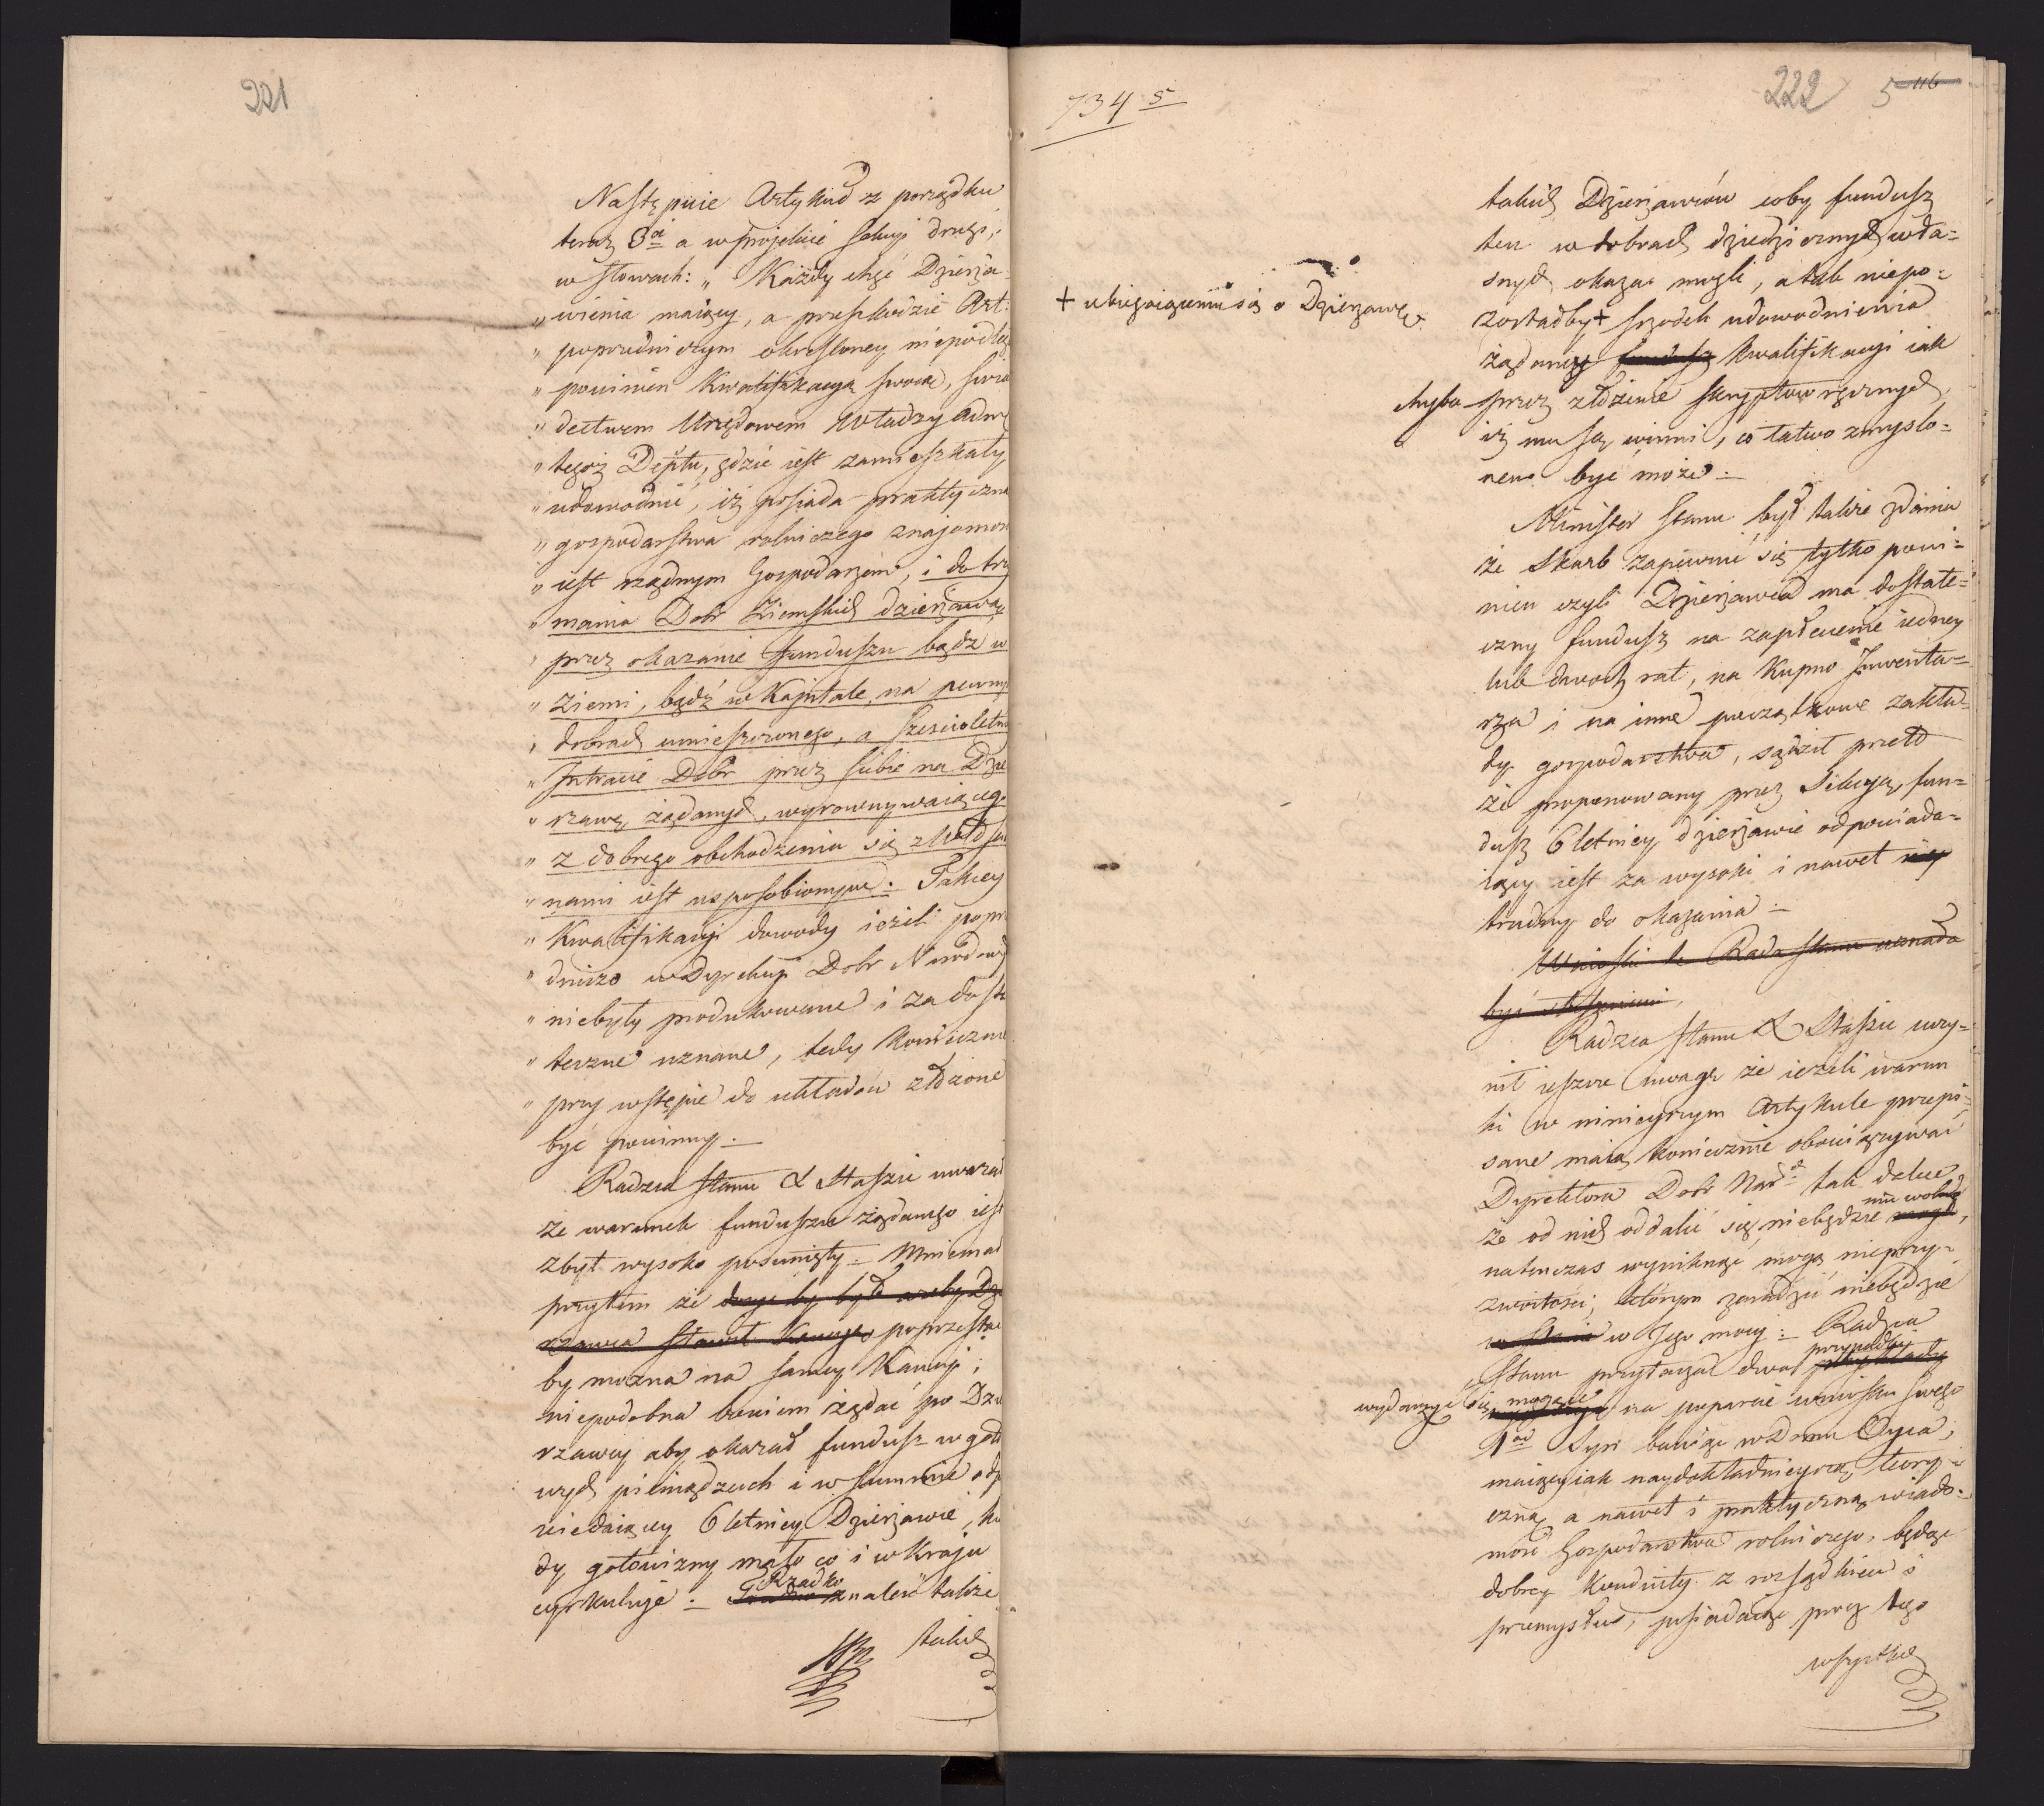 221
Następuie Artykuł z porządku
teraz 3ci a w projekcie sekcyi drugi,
w słowach: „ Każdy chęć Dzierża-
„ wienia maiący, a przeszkodzie Art:
„ poprzedniczym określoney niepodleg
„ powinien Kwalifikacyą swoię, świa
„ dectwem Urzędowem Władzy Adm
„ tegoż Deptu, gdzie iest zamieszkały,
„ udowodnić, iż posiada praktyczną
„ gospodarstwa rolniczego znajomoś
„ iest rządnym Gospodarzem, i do trzy
„ mania Dobr Ziemskich dzierżawą,
„ przez okazanie funduszu bądź w
„ Ziemi, bądź w Kapitale, na pewny
„ dobrach umieszczonego, a sześcioletni
„ Intracie Dobr przez siebie na Dzie
„ rzawę żądanych, wyrownywaiąceg
„ z dobrego obchodzenia się z Włościa
„ nami iest usposobionym. Takiey
„ Kwalifikacyi dowody ieżeli poprze
„ dniczo w Dyrekcyi Dobr Narodowy
„ niebyły produkowane i za dosta
„ teczne uznane, tedy koniecznie
„ przy wstępie do układów złożone
być powinny.
Radzca Stanu X Staszic uważał
że warunek funduszu żądanego iest
zbyt wysoko posunięty. Mniemał
przytem że dosyć by było żeby Dzie
rzawca stawił Kaucyę poprzestać
by można na samey Kaucyi;
niepodobna bowiem żądać po Dzie
rzawcy aby okazał fundusz w goto
wych pieniądzach i w summie odpo
wiedaiącey 6 letniey Dzierżawie, kie
dy gotowizny mało co i w Kraju
cyrkuluje. Rzadko znaleść także
takich
734 5
222 5 116
takich Dzierżawców coby fundusz
ten w dobrach dziedzicznych wła-
snych okazać mogli, a tak niepo-
zostałby + srzodek udowodnienia
+ ubiegaiącemu się o Dzierżawę
żądaney fundusz kwalifikacyi iak
chyba przez złożenie skryptow ręcznych
iż mu są winni, co łatwo zmyślo-
nem być może.
Minister Stanu był także zdania
że Skarb zapewnić się tylko powi-
nien czyli Dzierżawca ma dostate-
czny fundusz na zapłacenie iedney
lub dwoch rat, na Kupno Inwenta-
rza i na inne początkowe zakła-
dy gospodarstwa, sądził przeto
że proponowany przez Sekcyą fun-
dusz 6 letniey dzierżawie odpowiada-
iący iest za wysoki i nawet
trudny do okazania.
Wnioski te Rada Stanu uznała
być słusznemi,
Radzca Stanu X Staszic uczy-
nił ieszcze uwagę że ieżeli warun
ki w ninieyszym Artykule przepi-
sane maią koniecznie obowiązywać
Dyrektora Dobr Nar: tak dalece
że od nich oddalić się niebędzie mu wolno,
natenczas wyniknąć mogą nieprzy-
zwoitości, którym zaradzić niebędzie
w Jego mocy. Radzca
Stanu przytaczał dwa przypadki przykłady
wydarzyć się mogące na poparcie wniosku swego
1od Syn bawiąc w Domu Oyca,
maiący iak naydokładnieyszą teory-
czną a nawet i praktyczną wiado-
mość Gospodarstwa rolniczego, będąc
dobrey konduity z rozsądkiem i
przemysłem, posiadając przez tego
wszystkich